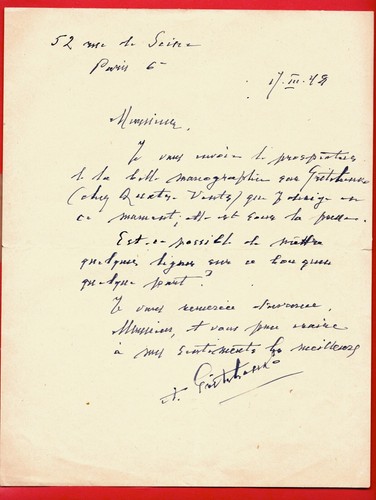 52 rue de Seine
Paris 6e
17. III. 48
Monsieur,
Je vous envoie le prospectus
de la belle monographie sur Gretchaninov
(chez Quatre Vents) que je dirige en
ce moment, elle est sous la presse.
Est-ce possible de mettre
quelques lignes sur ce bouquin
quelque part?
Je vous remercie d'avance,
Monsieur, et vous prie croire
à mes sentiments les meilleurs